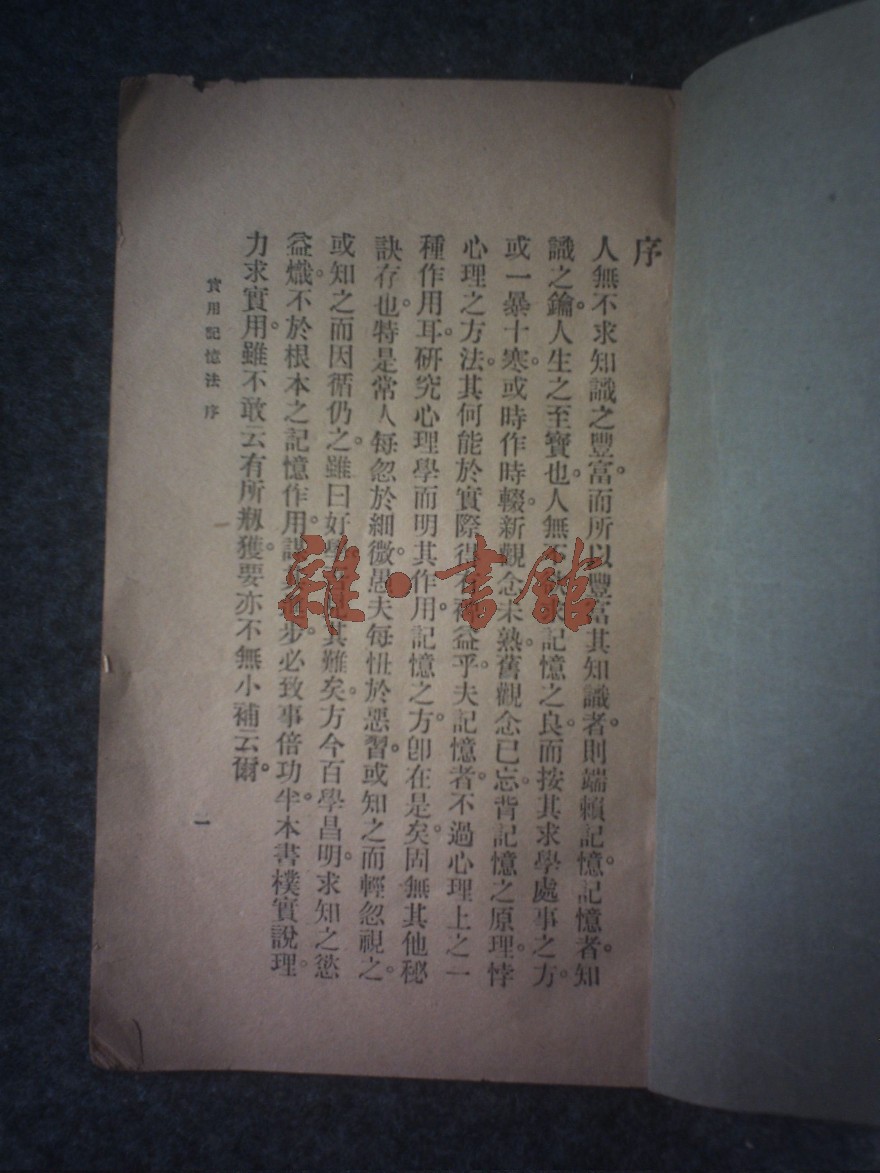 序
人無不求知識之豐富。而所以豐富其知識者。則端賴記憶。記憶者。知
識之鑰。人生之至寶也。人無不 記憶之良。而按其求學處事之方。
或一暴十寒。或時作時輟。新觀念未熟。舊觀念已忘。背記憶之原理。悖
心理之方法。其何能於實際得 益乎。夫記憶者。不過心理上之一
種作用耳。研究心理學而明其作用。記憶之方。卽在是矣。固無其他秘
訣存也。特是常人每忽於細微。愚夫每忸於惡習。或知之而輕忽視之。
或知之而因循仍之。雖曰好學 其難矣。方今百學昌明。求知之慾
益熾。不於根本之記憶作用。謀 步。必致事倍功半。本書樸實說理。
力求實用。雖不敢云有所剏獲。要亦不無小補云爾。
實用記憶法 序
一
雜·書館